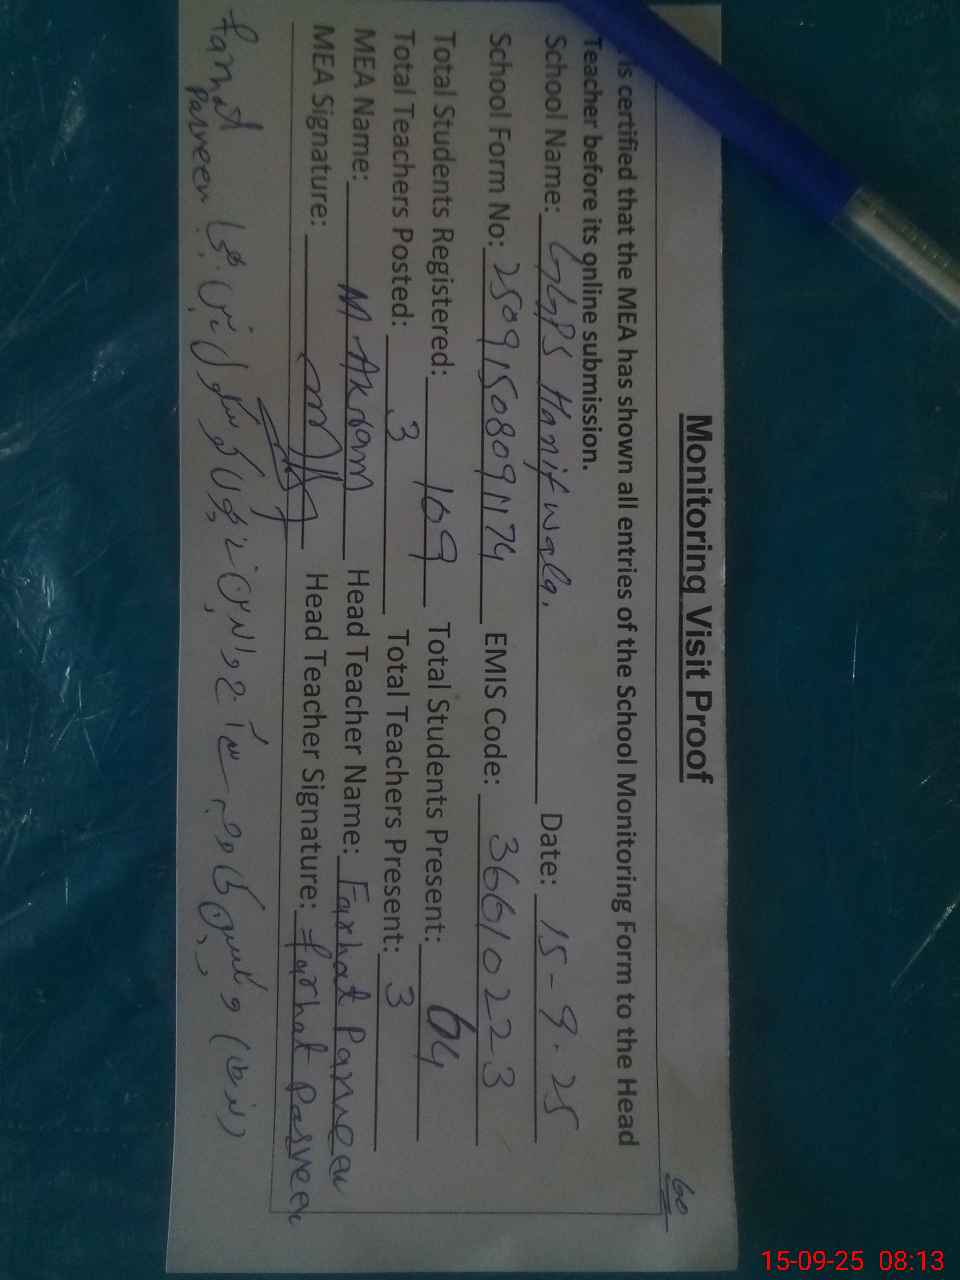 60
Monitoring Visit Proof
is certified that the MEA has shown all entries of the School Monitoring Form to the Head
Teacher before its online submission.
School Name: GGPS Hanif wala. Date: 15-9-25
School Form No: 25091508091174 EMIS Code: 36610223
Total Students Registered: 109 Total Students Present: 64
Total Teachers Posted: 3 Total Teachers Present: 3
MEA Name: M Akram Head Teacher Name: Farhat Parveen
MEA Signature: Head Teacher Signature: Farhat Parveen
Farhat
Parveen
15-09-25 08:13